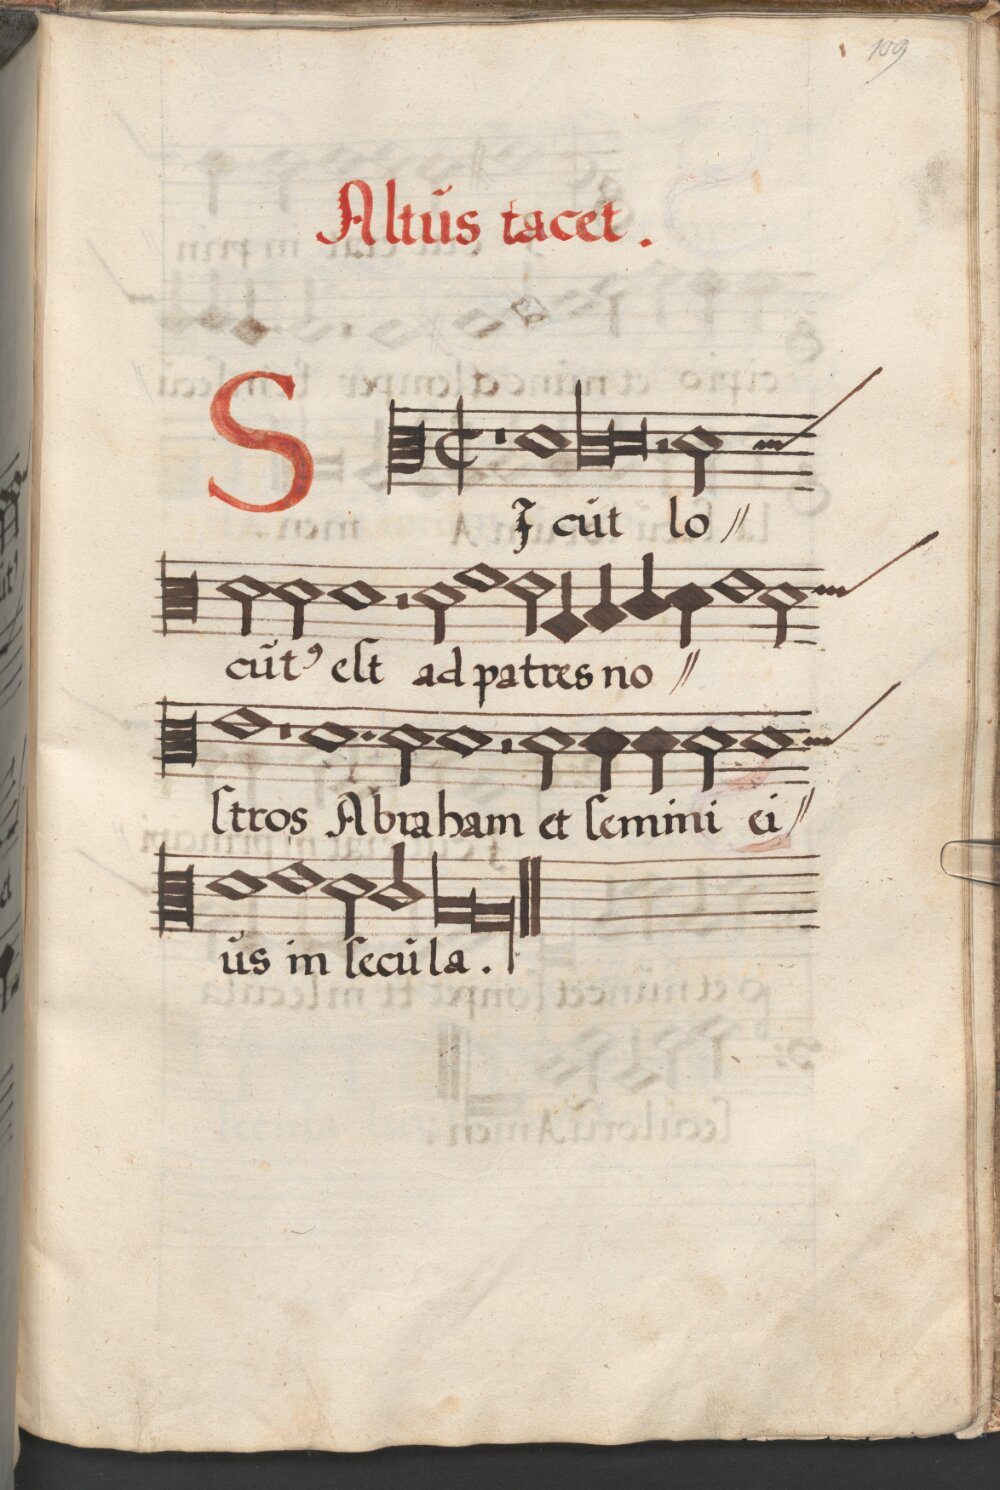 109
Altus tacet.
SIcut lo //
cut⁹ est ad patres no //
stros Abraham et semini ei //
us in secula.